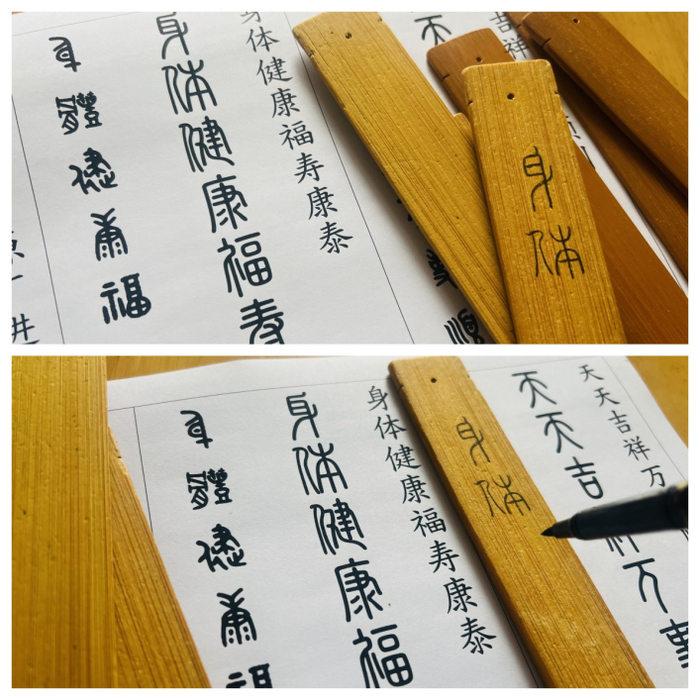 吉祥
天
身体
身体健康福寿康泰
身体健康福寿
身體健康福
进
天天吉祥万
天天吉万
身体
身体健康福寿康泰
身体健康福
身體健康福